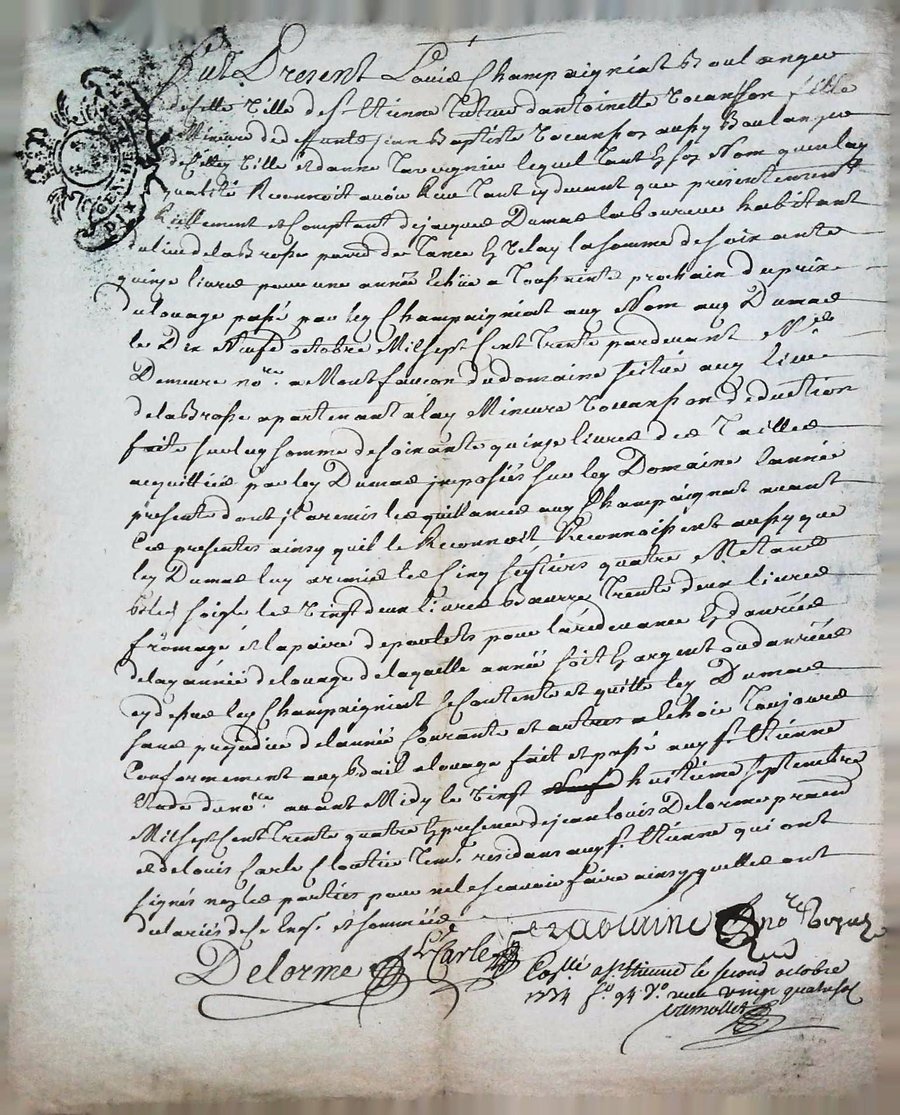 Fut Present Louis Champaigniat Boulanger
de cette Ville de St Etienne Tuteur dantoinette fille
Mineure de deffunts jean Baptiste aussy Boulanger
de cette Ville et danne Lavergnie lequel Tant En son Nom quen lad
qualité Reconnoit avoir Reu Tant cydevant que présentement
Reellement et Comptant de jacques Dumas laboureur habitant
du lieu de laBrosse parr. de Tance En Velay la somme de soixante
quinze livres pour une année Echüe a Toussaints prochain du prix
du louage passé par led Champaignat aud Nom aud Dumas
le Dix Neufe octobre Mil sept Cent Trente pardevant Me
Demeure nore a Montfaucon du domaine scitué aud lieu
de laBrosse apartenant a lad Mineure deduction
faite sur lad somme de soixante quinze livres des Tailles
acquittées par led Dumas jmposées sur led Domaine Lannée
présente dont jl a remis les quittances aud Champaignat avant
Ces presentes ainsy quil le Reconnoit Reconnoissent aussy que
led Dumas luy a remis les Cinq sestiers quatre Metans
bled seigle les Vingt deux livres Beurre Trente deux livres
fromage et la paire de poulets pour la redevance En danrées
de lad année de louage de laquelle année soit En argent ou danrées
cy dessus led Champaigniat se Contente et quitte led Dumas
sans prejudice de lannée Courante et autres a Echoir Toujours
Conformement aud Bail a louage fait et passé aud St Etienne
Etude du nore avant Midy le Vingt huitième septembre
Mil sept Cent Trente quatre En presence de jean Louis Delorme praticn
et de Louis Carle Cloutier Temt residans aud St Etienne qui ont
signés non les parties pour ne le scavoir faire ainsy quelles ont
declarées de ce Enq. et sommées
nore Royal
Delorme Ls Carle
Conllé a St Etienne le second octobre
1734 fo 94 Vo reeu vingt quatre sol